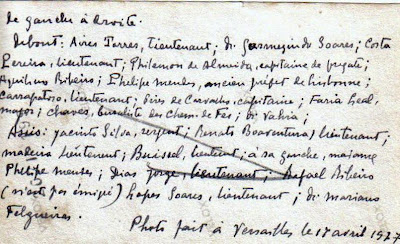 de gauche à droite.
Debout: Aires Torres, lieutenant; dr Gasmezindo Soares; Costa
Pereira, lieutenant; Philemon de Almeida, capitaine de frégate;
Aquilino Ribeiro; Phelipe Mendes, ancien préfet de Lisbonne;
Carrapatoso, lieutenant; Pires de Carvalho, capitaine; Faria Leal,
major; Chaves, des Chem. de Fer; dr
Assis: Jacinto Silva, sergent; Renato Boaventura, lieutenant;
Madeira lieutenent; Buissel, lieutent; à sa gauche, madame
Phelipe Mendes; Dias Jorge, lieutenant; Rafael Ribeiro
(n'est pas émigré) Lopes Soares, lieutenant; dr Mariano
Felgueiras.
Photo fait à Versailles le 18 avril 1927